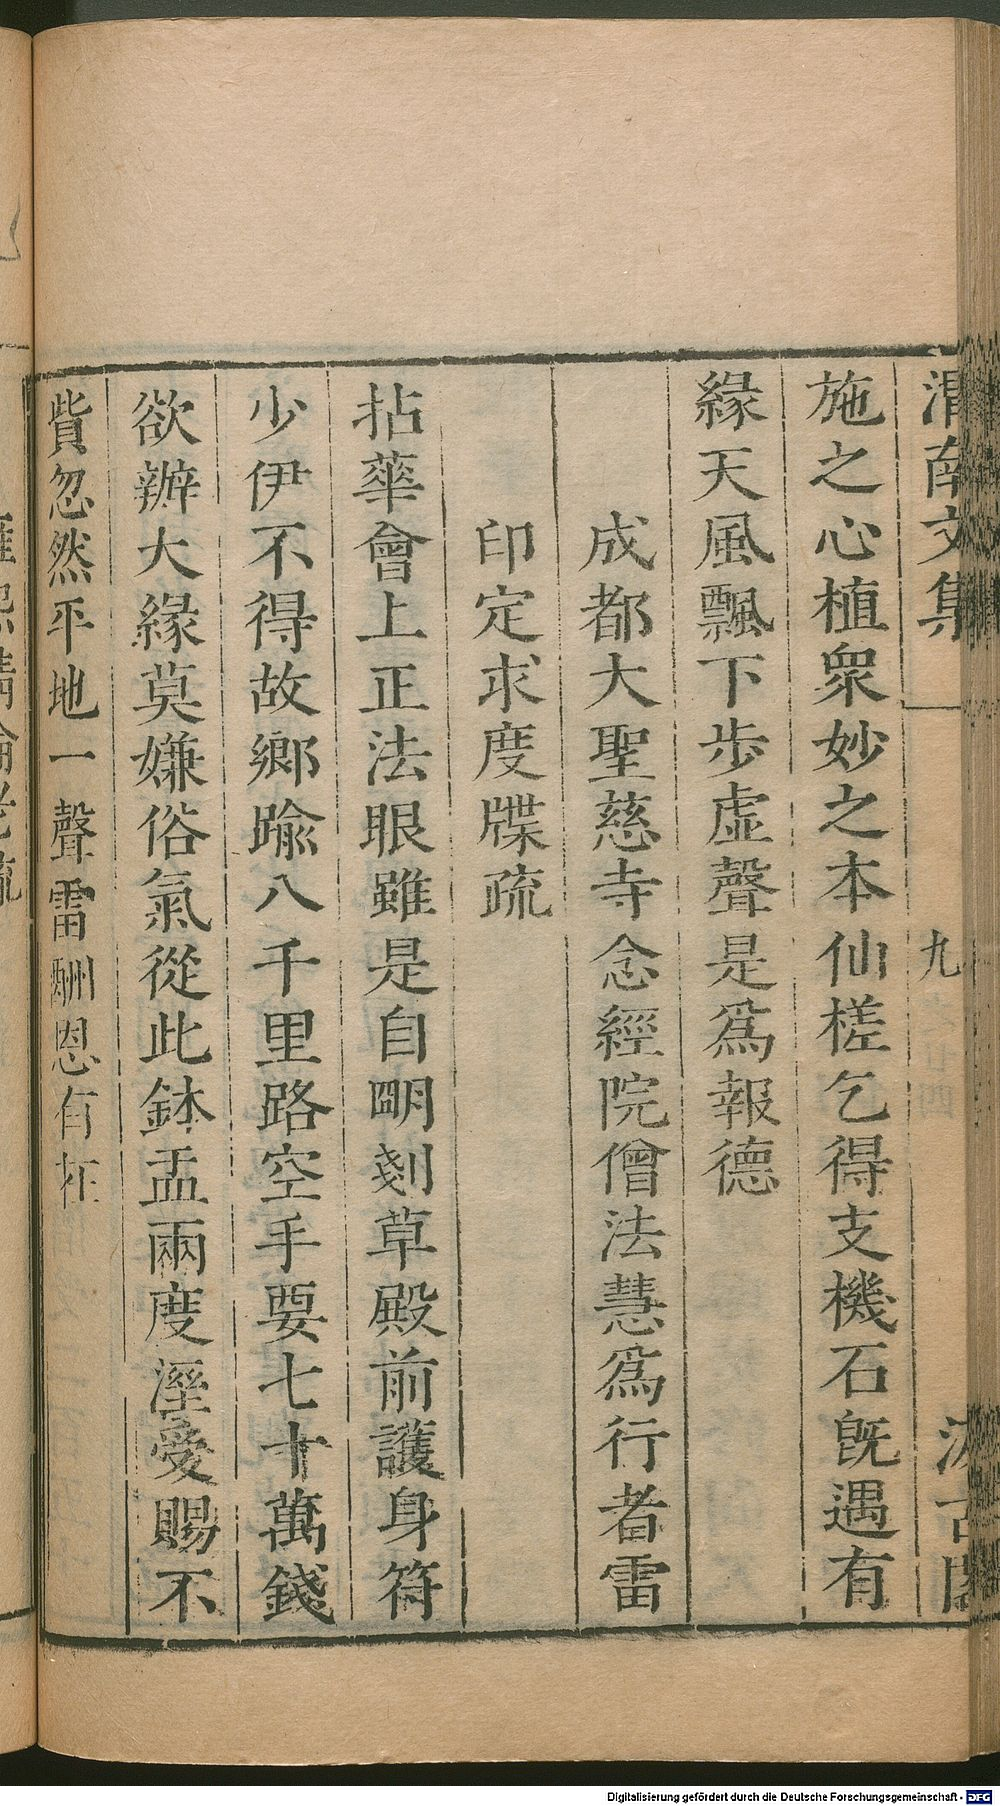 渭南文集
九
汲古閣
施之心植衆妙之本仙槎乞得支機石旣遇有
緣天風飄下步虛聲是爲報德
成都大聖慈寺念經院僧法慧爲行者雷
印定求度牒疏
拈華會上正法眼雖是自明剗草殿前護身符
少伊不得故鄉踰八千里路空手要七十萬錢
欲辦大緣莫嫌俗氣從此鉢盂兩度溼愛賜不
貲忽然平地一聲雷酬恩有在
Digitalisierung gefördert durch die Deutsche Forschungsgemeinschaft - DFG